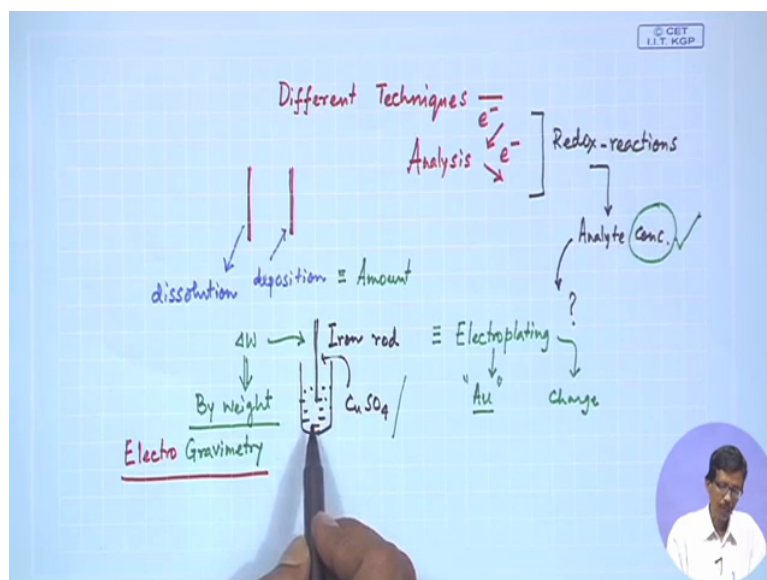 © CET
I.I.T. KGP
Different Techniques —
e⁻
Analysis e⁻
Redox-reactions
Analyte conc. ✓
dissolution deposition ≡ Amount
?
ΔW → Iron rod ≡ Electroplating
By weight CuSO₄ "Au" Charge
Electro Gravimetry